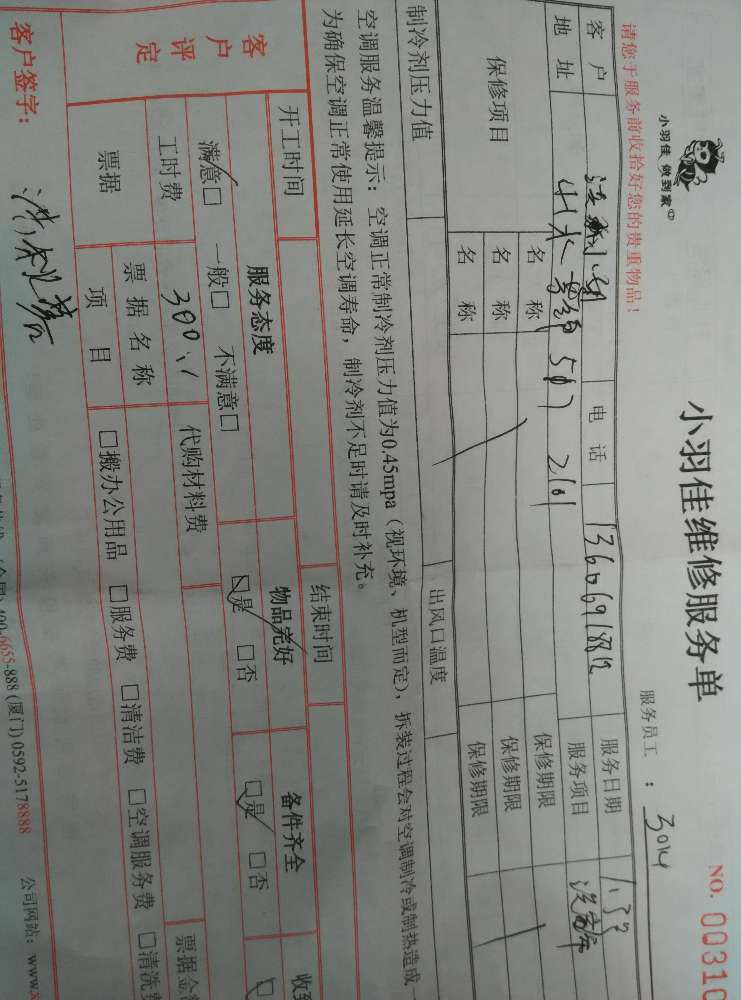 小羽佳 做到家
小羽佳维修服务单
NO. 00310
请您于服务前收拾好您的贵重物品！
服务员工 ： 3014
客户 电话 服务日期
地址 山水 507 2101 服务项目
保修项目 名称 保修期限
名称 保修期限
名称 保修期限
制冷剂压力值 出风口温度
空调服务温馨提示： 空调正常制冷剂压力值为0.45mpa（视环境、机型而定），拆装过程会对空调制冷或制热造成
为确保空调正常使用延长空调寿命，制冷剂不足时请及时补充。
开工时间 结束时间
客户评定 服务态度 物品完好 备件齐全 收到
满意□ 一般□ 不满意□ □是 □否 □是 □否
工时费 300 代购材料费
票据 票据名称 票据金
项目 □搬办公用品 □服务费 □清洁费 □空调服务费 □清洗费
客户签字：
400-6655-888 (厦门) 0592-5178888 公司网站：www.